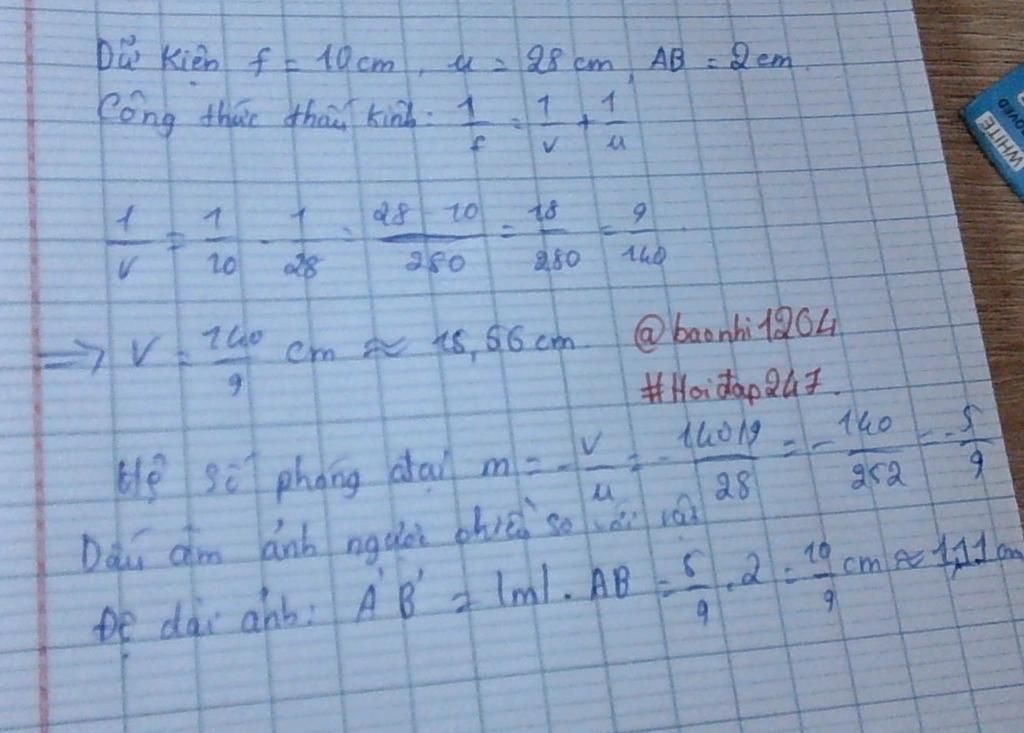 Dữ kiện f = 10cm, u = 28cm, AB = 2cm.
Công thức thấu kính: 1/f = 1/v + 1/u
1/v = 1/10 - 1/28 = 28 - 10/280 = 18/280 = 9/140
=> v = 140/9 cm ≈ 15,56cm. @baonhi1264
#Hoiđap247.
Hệ số phóng đại m = -v/u = -140/9/28 = -140/252 = -5/9
Dấu âm ảnh ngược chiều so với vật
Độ dài ảnh: A'B' = |m|. AB = 5/9 . 2 = 10/9 cm ≈ 1,11cm
WHITE